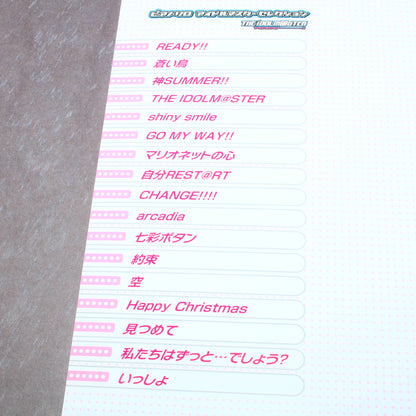 ピアノソロ アイドルマスターセレクション
THE IDOLM@STER
READY!!
蒼い鳥
神SUMMER!!
THE IDOLM@STER
shiny smile
GO MY WAY!!
マリオネットの心
自分REST@RT
CHANGE!!!!
arcadia
七彩ボタン
約束
空
Happy Christmas
見つめて
私たちはずっと…でしょう?
いっしょ